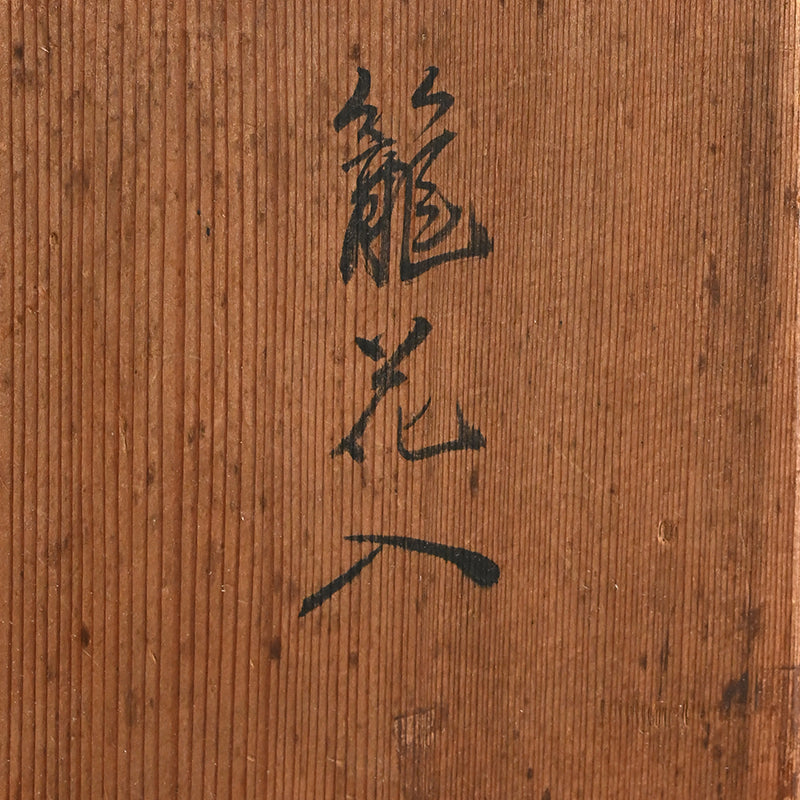 籠花入